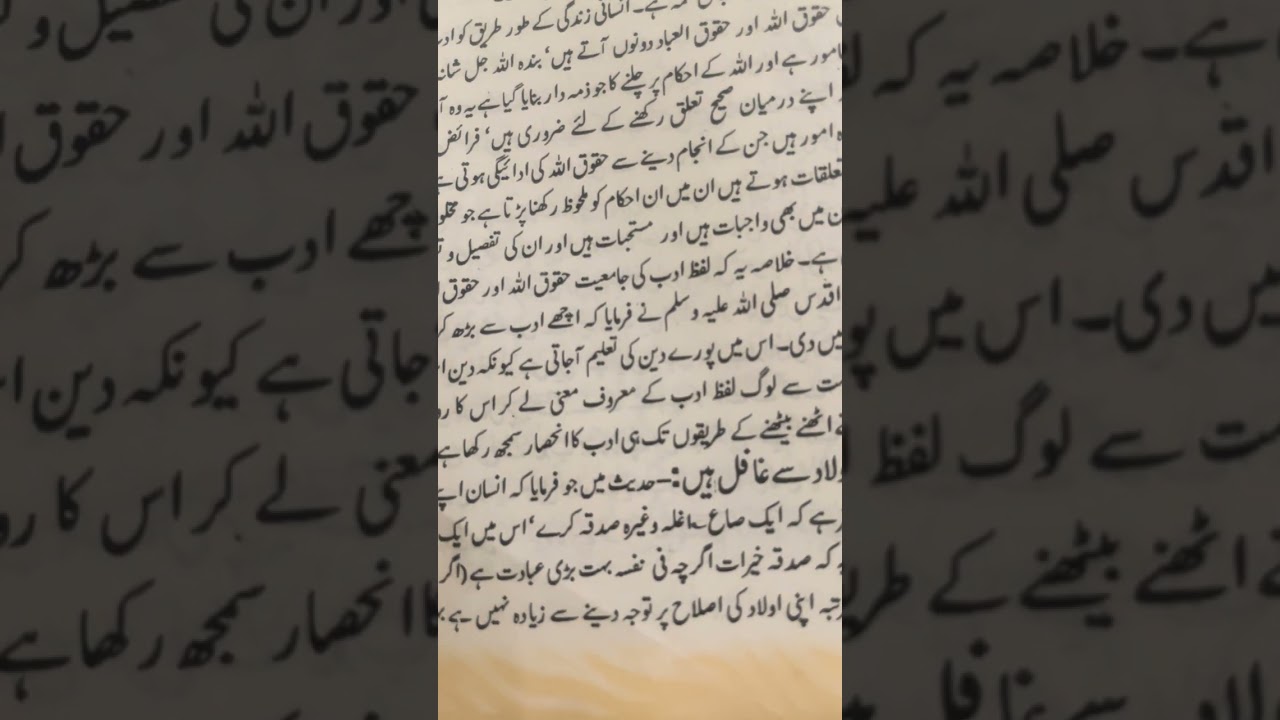 ہے۔ انسانی زندگی کے طور طریق کو
حقوق اللہ اور حقوق العباد دونوں آتے ہیں‘ بندہ اللہ جل
ہے اور اللہ کے احکام پر چلنے کا جو ذمہ دار بنایا گیا ہے یہ وہ
اپنے درمیان صحیح تعلق رکھنے کے لئے ضروری ہیں‘
امور ہیں جن کے انجام دینے سے حقوق اللہ کی ادائیگی ہوتی
ہوتے ہیں ان میں ان احکام کو ملحوظ رکھنا پڑتا ہے جو
میں بھی واجبات ہیں اور مستحبات ہیں اور ان کی تفصیل و
ہے۔ خلاصہ یہ کہ لفظ ادب کی جامعیت حقوق اللہ اور حقوق
اقدس صلی اللہ علیہ وسلم نے فرمایا کہ اچھے ادب سے بڑھ
دی۔ اس میں پورے دین کی تعلیم آجاتی ہے کیونکہ دین
سے لوگ لفظ ادب کے معروف معنی لے کر اس کا
اٹھنے بیٹھنے کے طریقوں تک ہی ادب کا انحصار سمجھ رکھا ہے
سے غافل ہیں:– حدیث میں جو فرمایا کہ انسان
ہے کہ ایک صاع غلہ وغیرہ صدقہ کرے‘ اس میں ایک
کہ صدقہ خیرات اگرچہ فی نفسہ بہت بڑی عبادت ہے (اگر
اپنی اولاد کی اصلاح پر توجہ دینے سے زیادہ نہیں ہے